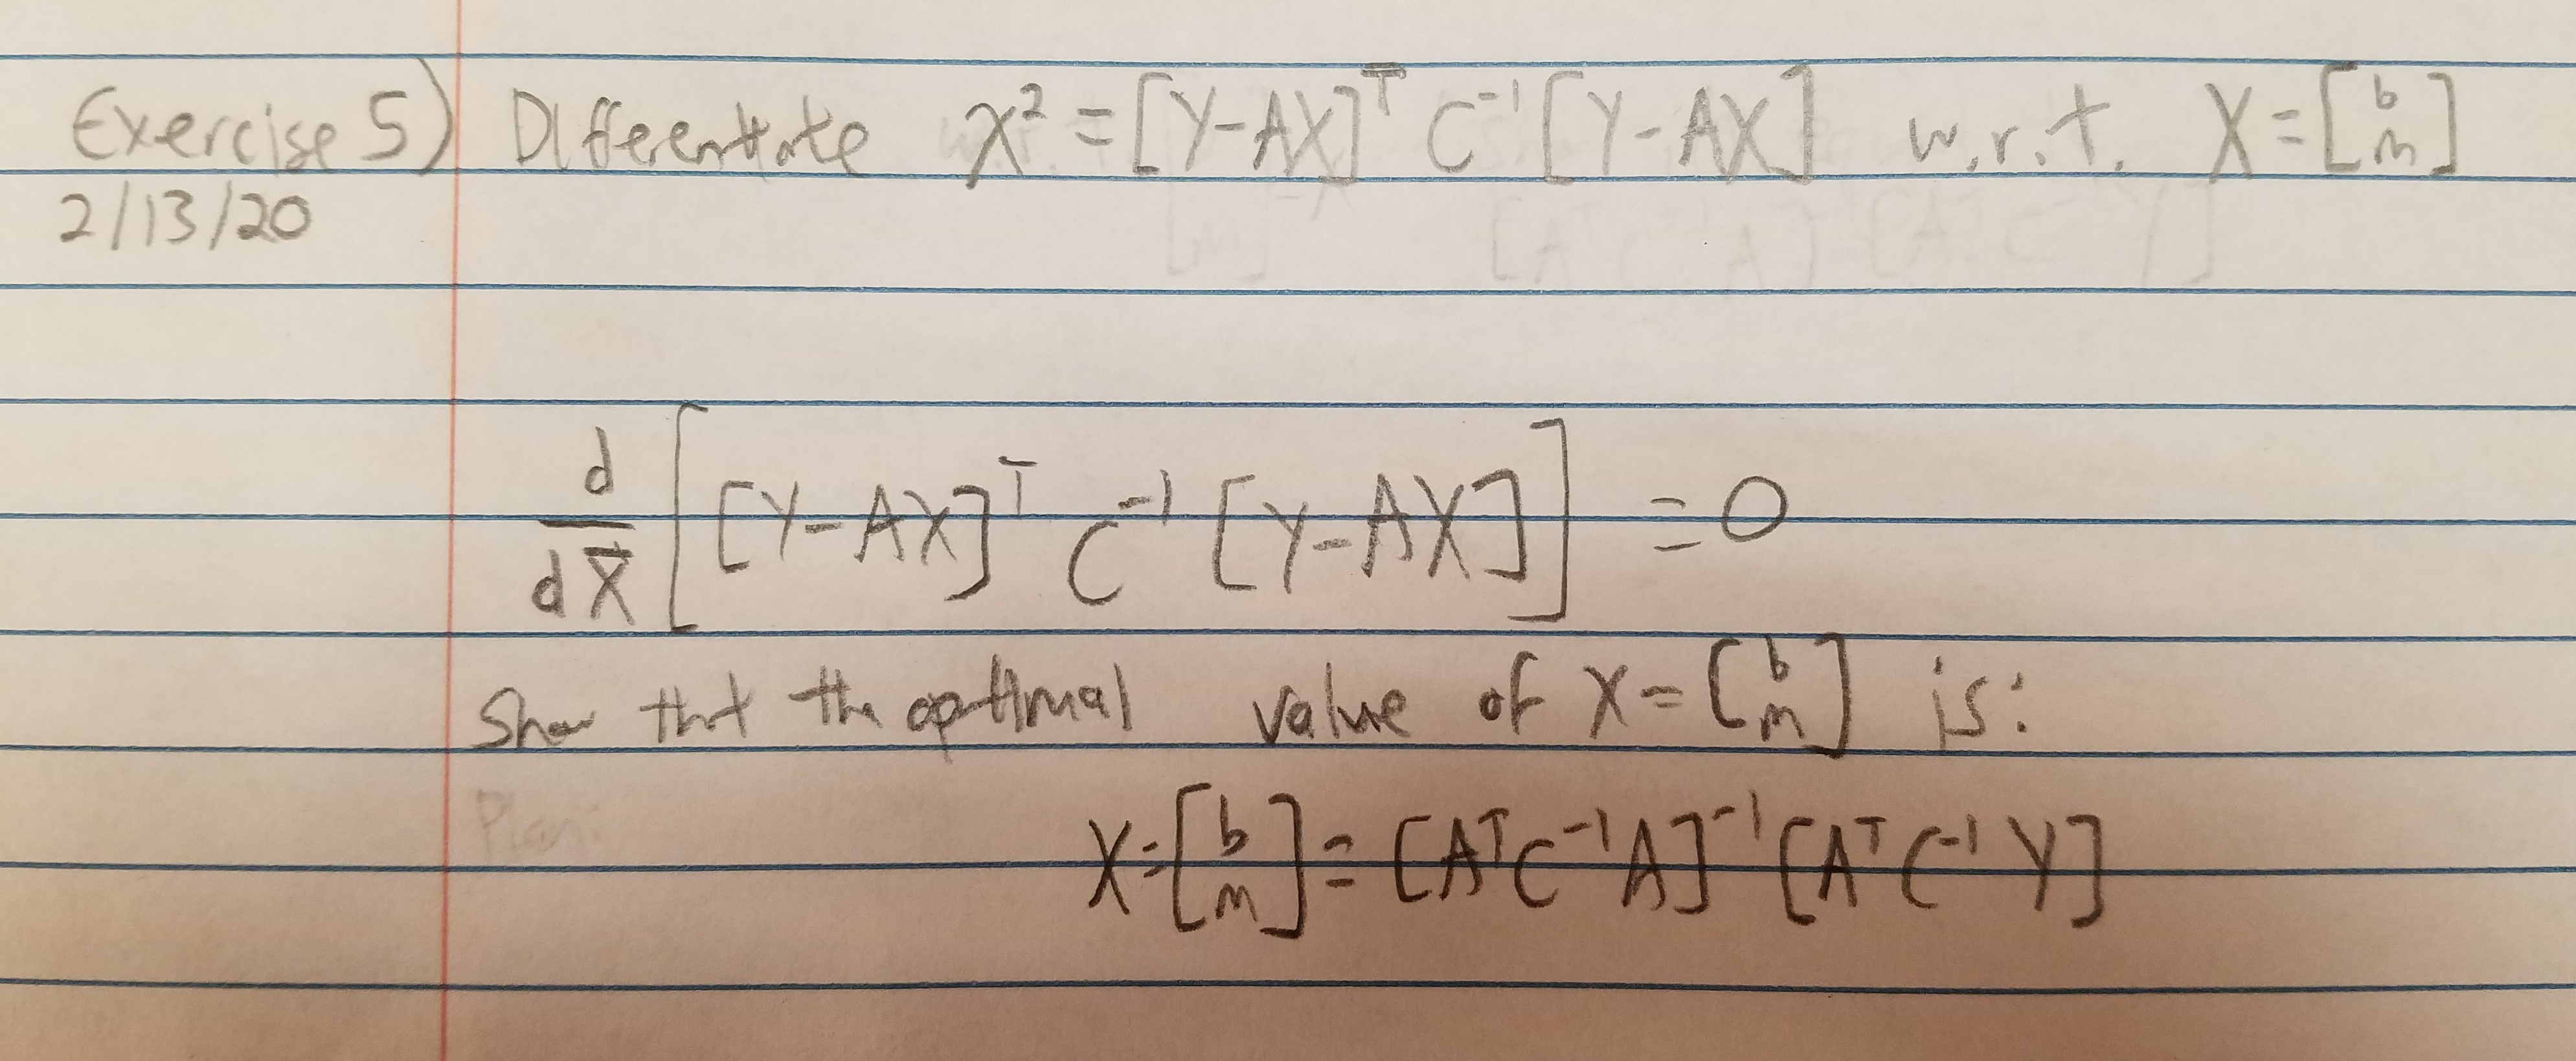 Exercise 5) Differentiate χ² = [Y-AX]ᵀ C⁻¹ [Y-AX] w.r.t. X = [b m]
2/13/20
d/dX [[Y-AX]ᵀ C⁻¹ [Y-AX]] = 0
Show that the optimal value of X = [b m] is:
Plan:
X = [b m] = [AᵀC⁻¹A]⁻¹ [AᵀC⁻¹Y]